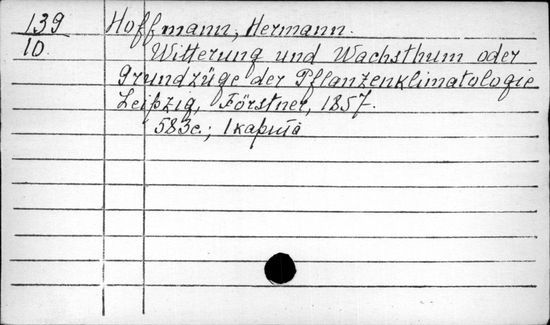 139 Hoffmann, Hermann.
10. Witterung und Wachsthum oder
Grundzüge der Pflanzenklimatologie
Leipzig, Förstner, 1857.
583с.; 1 карта